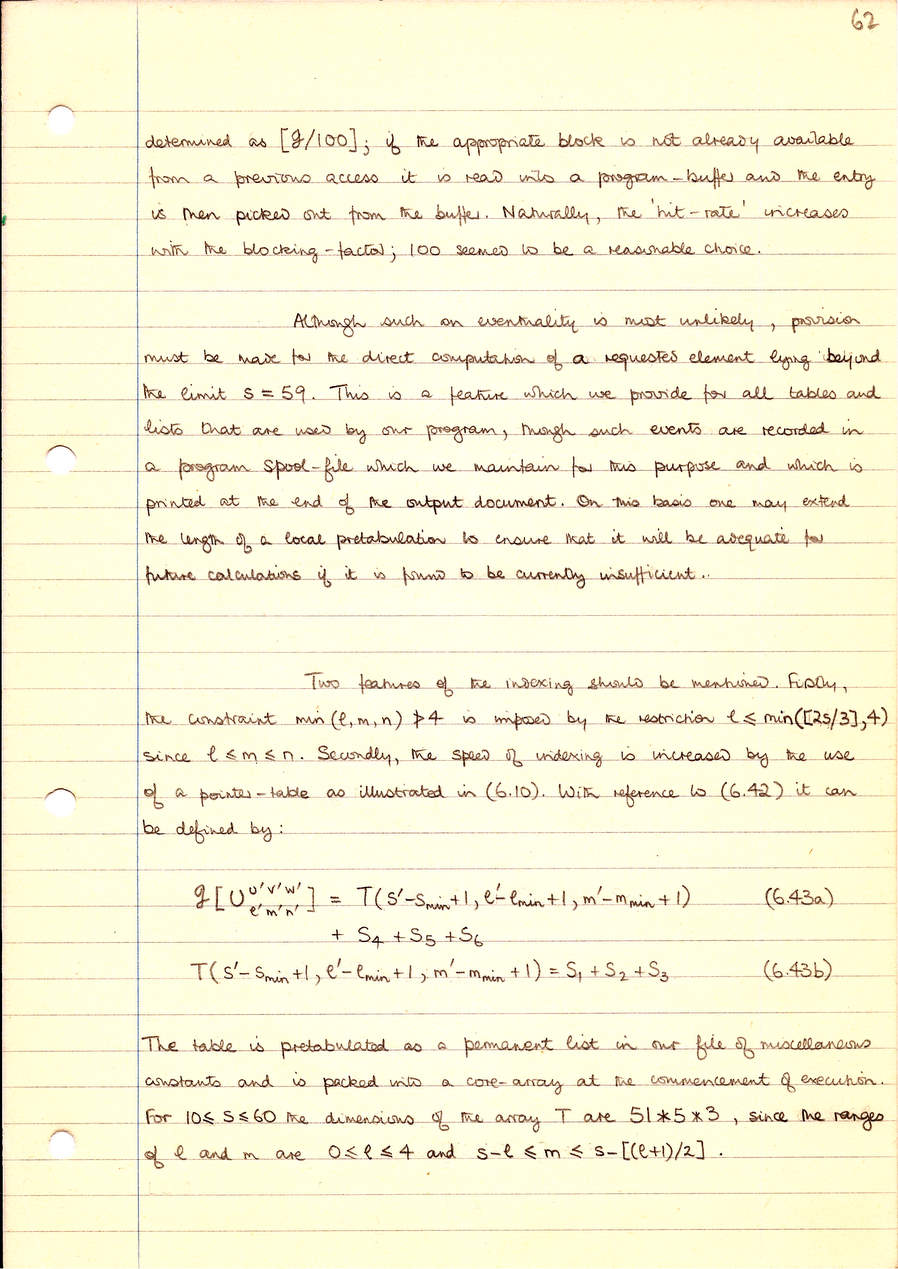 62
determined as [g/100]; if the appropriate block is not already available
from a previous access it is read into a program-buffer and the entry
is then picked out from the buffer. Naturally, the 'hit-rate' increases
with the blocking-factor; 100 seemed to be a reasonable choice.
Although such an eventuality is most unlikely, provision
must be made for the direct computation of a requested element lying beyond
the limit s = 59. This is a feature which we provide for all tables and
lists that are used by our program, though such events are recorded in
a program spool-file which we maintain for this purpose and which is
printed at the end of the output document. On this basis one may extend
the length of a local pretabulation to ensure that it will be adequate for
future calculations if it is found to be currently insufficient..
Two features of the indexing should be mentioned. Firstly,
the constraint min(ℓ,m,n) ≯ 4 is imposed by the restriction ℓ ≤ min([2s/3],4)
since ℓ ≤ m ≤ n. Secondly, the speed of indexing is increased by the use
of a pointer-table as illustrated in (6.10). With reference to (6.42) it can
be defined by:
g[U^{u'v'w'}_{ℓ'm'n'}] = T(s'-s_min+1, ℓ'-ℓ_min+1, m'-m_min+1) (6.43a)
+ S₄ + S₅ + S₆
T(s'-s_min+1, ℓ'-ℓ_min+1, m'-m_min+1) = S₁ + S₂ + S₃ (6.43b)
The table is pretabulated as a permanent list in our file of miscellaneous
constants and is packed into a core-array at the commencement of execution.
For 10 ≤ s ≤ 60 the dimensions of the array T are 51*5*3, since the ranges
of ℓ and m are 0 ≤ ℓ ≤ 4 and s-ℓ ≤ m ≤ s-[(ℓ+1)/2].